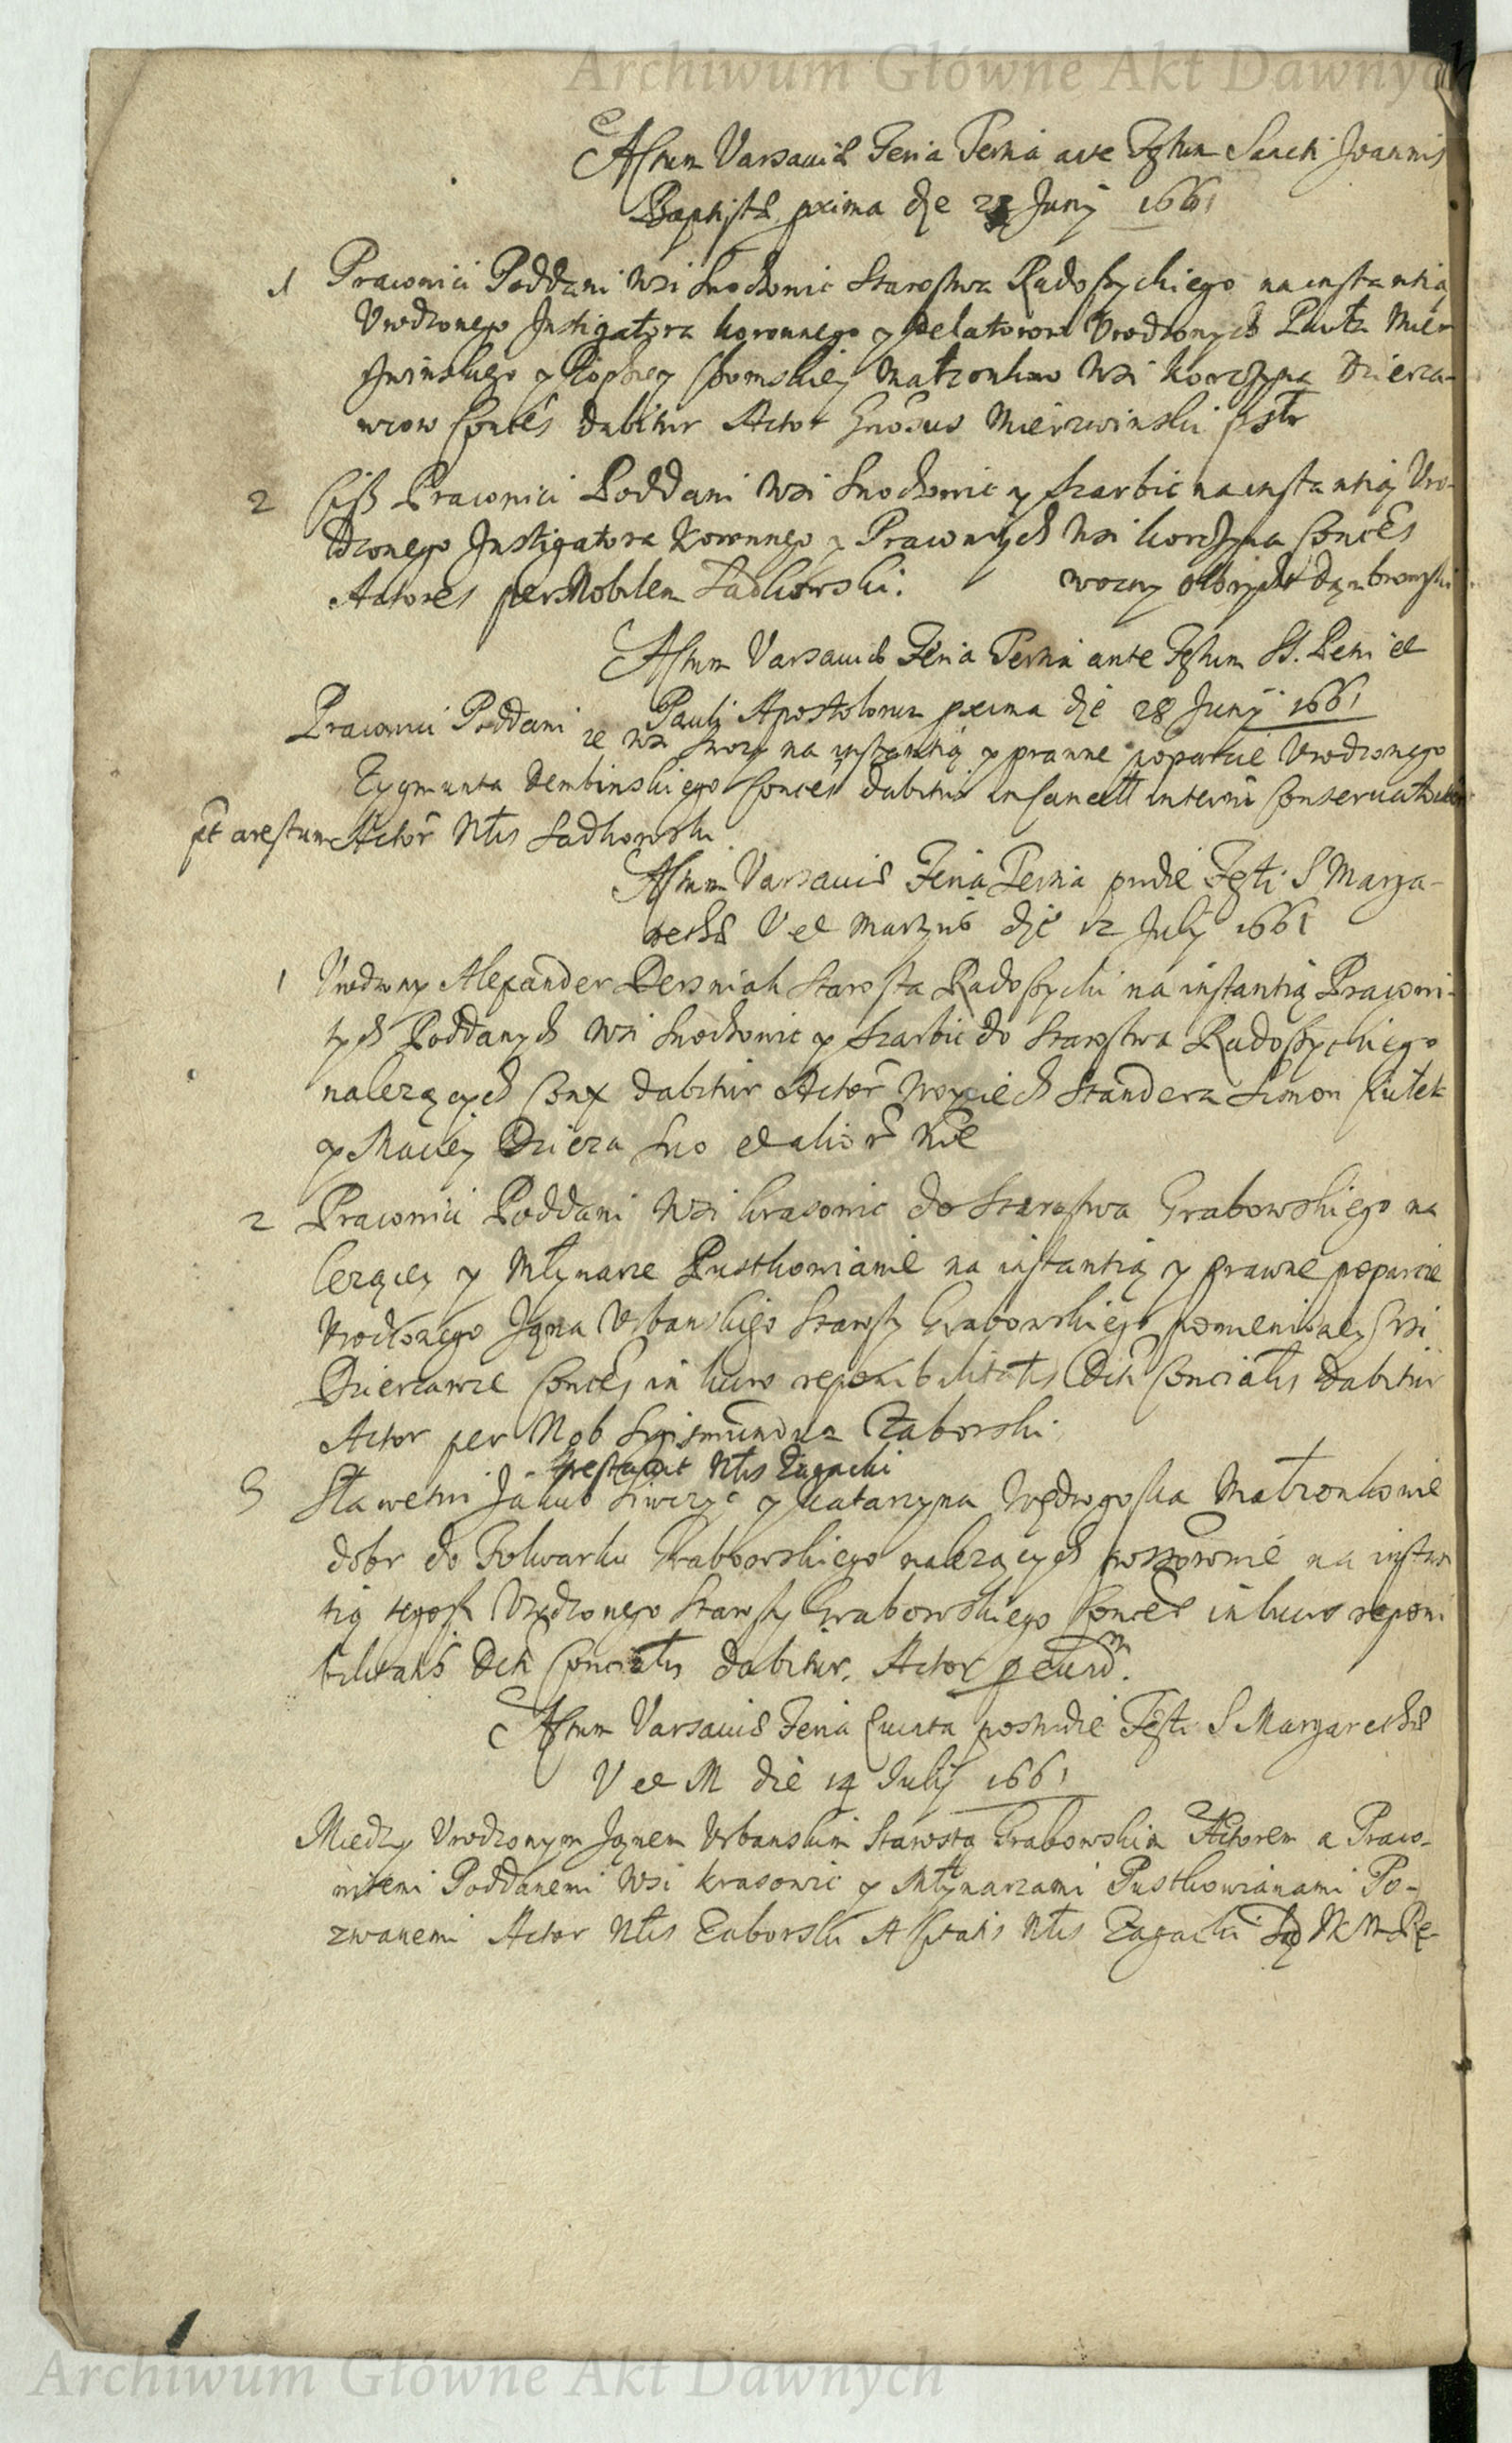 Archiwum Główne Akt Dawnych
Actum Varsaviæ Feria Tertia ante Festum Sancti Joannis
Baptistæ pxima die Junÿ 1661
1 Pracowici Poddani Wsi Snochowic Starostwa Radoszyckiego na instantią
Vrodzonego Instigatora koronnego y delatorow Vrodzonych Pawła Mier
zwinskiego y Zophiey małzonkow Wsi Korczyna Dzierza-
wcow Conces dabitur Actor Gnosus Mierzwinski
2 Ciż Pracowici Poddani Wsi Snochowic y Szarbic na instantią Vro-
dzonego Instigatora Koronnego y Pracowitych Wsi Korczyna Conces
Actores per Nobilem Sadkowski. wozny Olbrycht Dąmbrowski
Actum Varsaviæ Feria Tertia ante Festum SS. Petri et
Pauli Apostolorum pxima die 28 Junÿ 1661
Pracowici Poddani ze wsi na instantią y prawne poparcie Vrodzonego
Zygmunta Dembinskiego Conces dabitur in Cancell interim
pt arestum Actor Nlis Sadkowski
Actum Varsaviæ Feria Tertia pridie Festi S Marga-
rethæ V et Martyris die 12 Julÿ 1661
1 Vrodzony Alexander Starosta Radoszycki na instantią Pracowi-
tych Poddanych Wsi Snochowic y Szarbic do Starostwa Radoszyckiego
nalezących Conx dabitur Actor Woyciech Standera Simon
y Maciey Dziera suo et alior nie
2 Pracowici Poddani Wsi Krasowic do Starostwa Grabowskiego na
lezącey y Młynarze Pustkowianie na instantią y prawne poparcie
Vrodzonego Jana Vrbanskiego Starosty Grabowskiego pomienioney Wsi
Dzierzawce Conces in luco reponibilitatis Dcti Concialis dabitur
Actor per Nob Sigismundum Zaborski
Arestavit Nlis Zagacki
3 Sławetni Jakub y Katarzyna Małzonkowie
dobr do Folwarku Grabowskiego nalezących possessorowie na instan
tią tegosz Vrodzonego Starosty Grabowskiego Conces in luco reponi
bilitatis Dcti Concialis dabitur. Actor p eund.
Actum Varsaviæ Feria Quinta postridie Festi S Margarethæ
V et M die 14 Julÿ 1661
Miedzy Vrodzonym Janem Vrbanskim Starostą Grabowskim Actorem a Praco-
witemi Poddanemi Wsi Krasowic y Młynarzami Pustkowianami Po-
zwanemi Actor Nlis Zaborski A Citatis Nlis Zagacki Sąd
Archiwum Główne Akt Dawnych